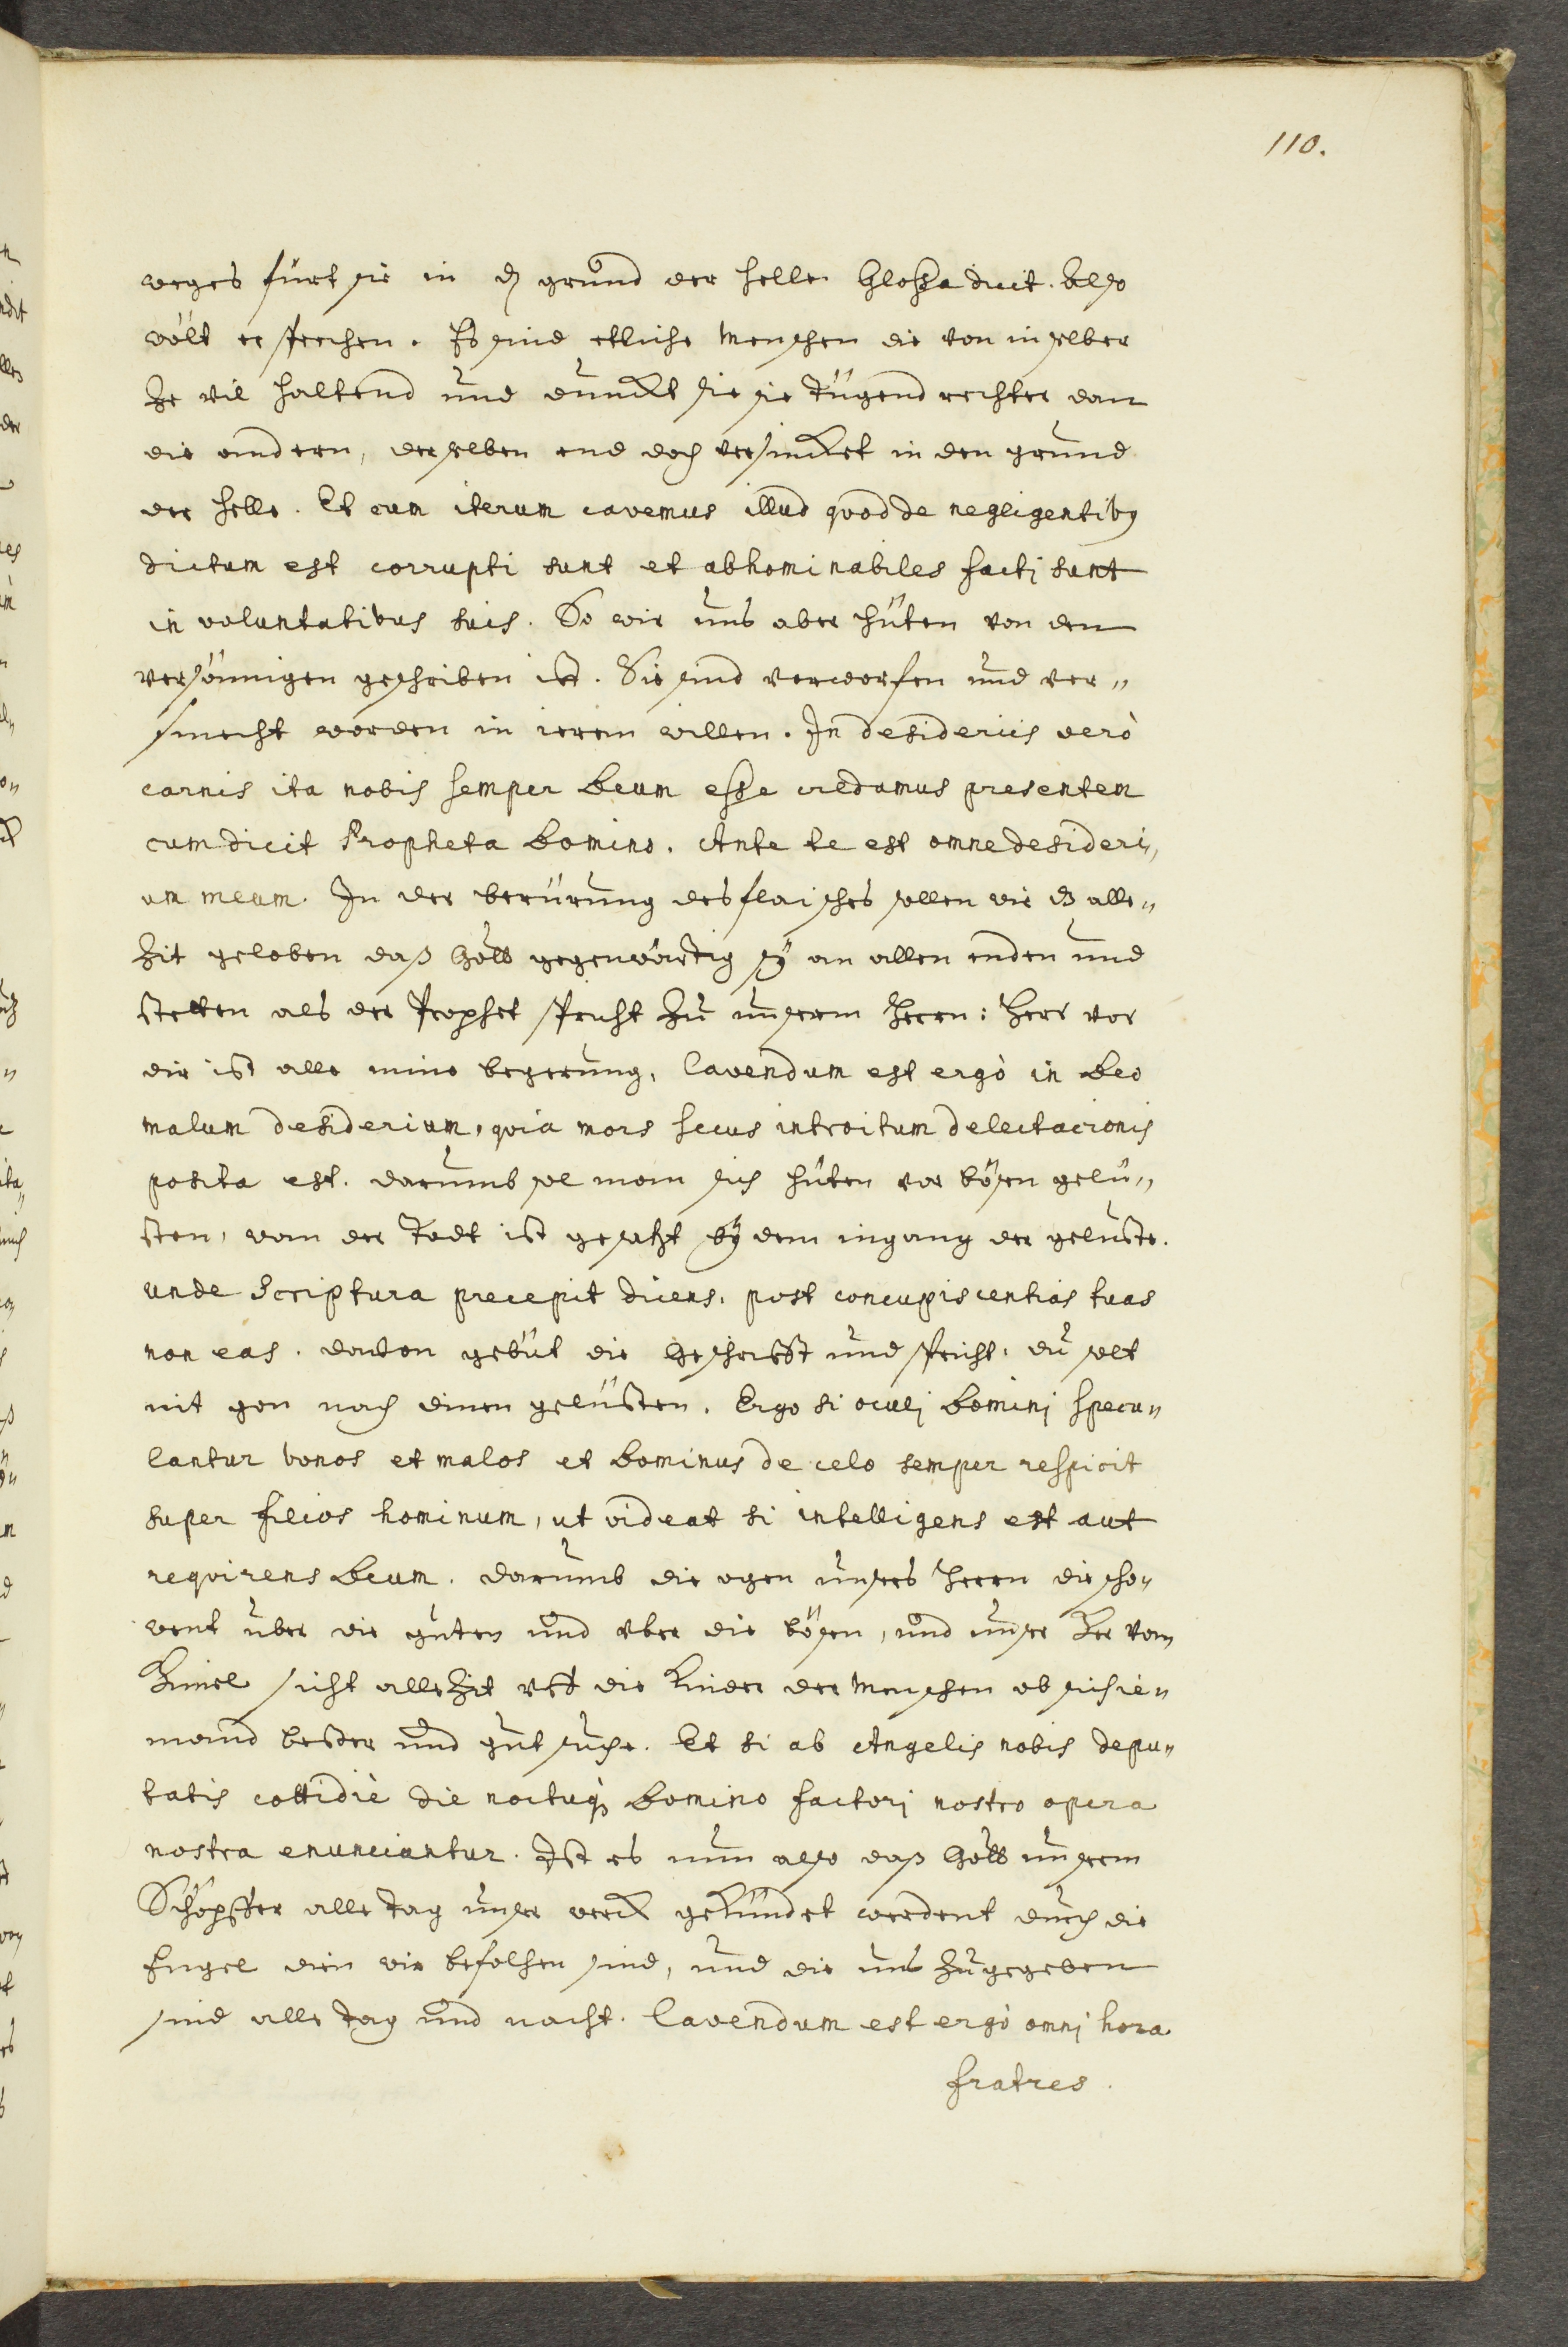 110.
weges fürt sie in dz grůnd der helle. Glossa dicit. Also
wölt er sprechen. Es sind etliche menschen die von in selber
ze vil haltend und dunckt sie sie tügend rechter dan
die andern, derselben end doch versincket in den grund
der helle. Et cum iterum cavemus illud quod de negligentibus
dictum est corrupti sunt et abhominabiles facti sunt
in voluntatibus suis. So wir uns aber hüten von den
versömigen geschriben ist. Sie sind verworfen und ver„
smecht worden in ierem willen. In desideriis verò
carnis ita nobis semper Deum esse credamus presentem
cum dicit Propheta Domino. Ante te est omne desideri„
um meum. In der berürung des flaisches sollen wir dz alle„
zit geloben daß Gott gegenwärtig sÿ an allen enden und
stetten als der Prophet spricht zu unserem Herrn: Herr vor
dir ist alle mine begerung, Cavendum est ergò in Deo
malum desiderium, quia mors secus introitum delectacionis
posita est. darumb sol man sich hüten vor bösen gelü„
sten, wan der Todt ist gesetzt bÿ dem ingang der geluste.
unde Scriptura precepit dicens, post concupiscentias tuas
non eas. davon gebüt die Geschrifft und spricht, du solt
nit gon nach dinen gelüsten. Ergo si oculj Dominj specu„
lantur bonos et malos et Dominus de celo semper respicit
super filios hominum, ut videat si intelligens est aut
requirens Deum. darumb die ogen unsers Herrn die scho„
went über die guten und uber die bösen, und unser Her vom
Himel sicht alle Zit uff die Kinder der menschen ob sich ie„
mand besser und gut suche. Et si ab Angelis nobis depu„
tatis cottidiè die noctuqꝫ Domino factorj nostro opera
nostra enunciantur. Ist es nun also daß Gott unserem
Schöpffer alle tag unser werck gekündet werdent durch die
Engel dien wir befolhen sind, und die uns zugegeben
sind alle tag und nacht. Cavendum est ergò omnj hora
fratres.